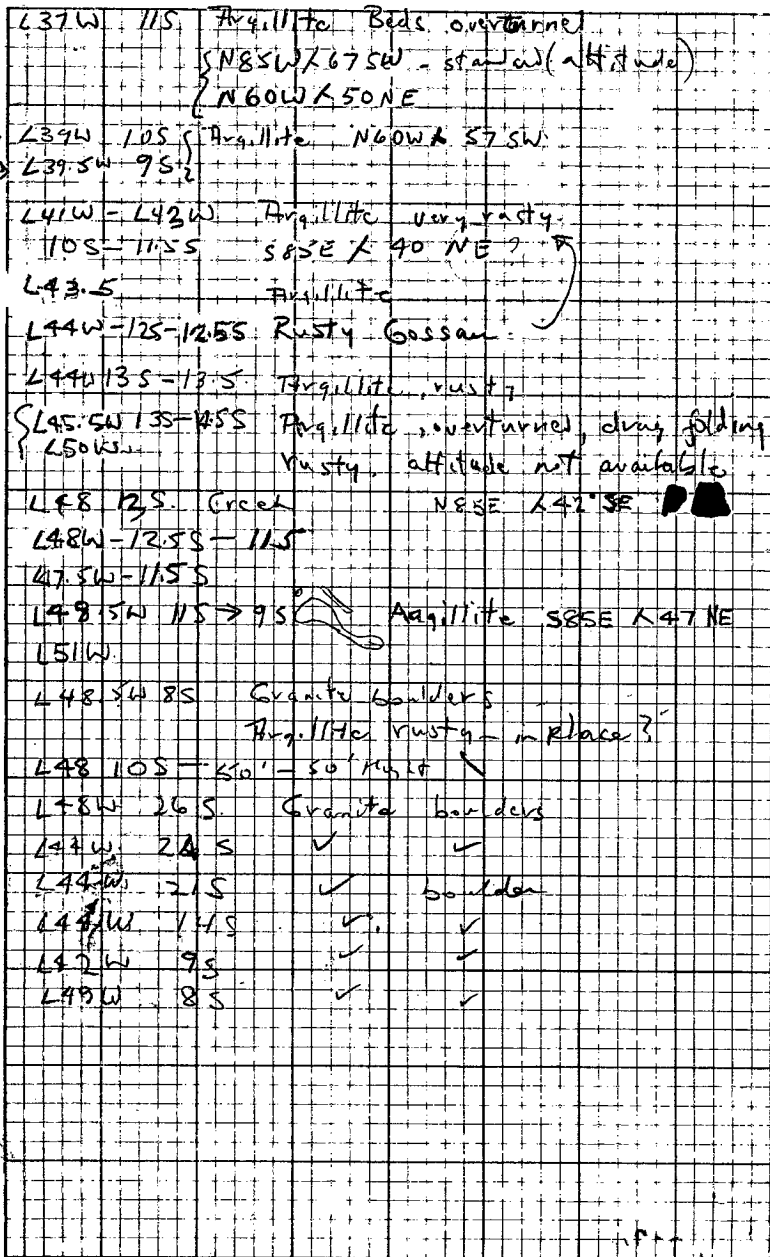 L37W 11S Argillite Beds overturned
N85W ⅄ 67SW - standard (attitude)
N60W ⅄ 50NE
L39W 10S Argillite N60W ⅄ 57SW
L39.5W 9S
L41W - L43W Argillite very rusty
10S - 11.5S S85E ⅄ 40 NE ?
L43.5 Argillite
L44W - 12S - 12.5S Rusty Gossan
L44W 13S - 13.5 Argillite, rusty
L45.5W 13S - 14.5S Argillite, overturned, drag folding
L50W rusty. attitude not available
L48 12S. Creek N85E ⅄ 42° SE
L48W - 12.5S - 11.5
47.5W - 11.5S
L48.5W 11S → 9S Aagillite S85E ⅄ 47 NE
L51W
L48.5W 8S Granite boulders
Argillite rusty - in place?
L48 10S - 50' - 50'
L48W 26S. Granite boulders
L44W 24S ✓ ✓
L44W 21S ✓ boulder
L44W 14S ✓ ✓
L42W 9S ✓ ✓
L49W 8S ✓ ✓